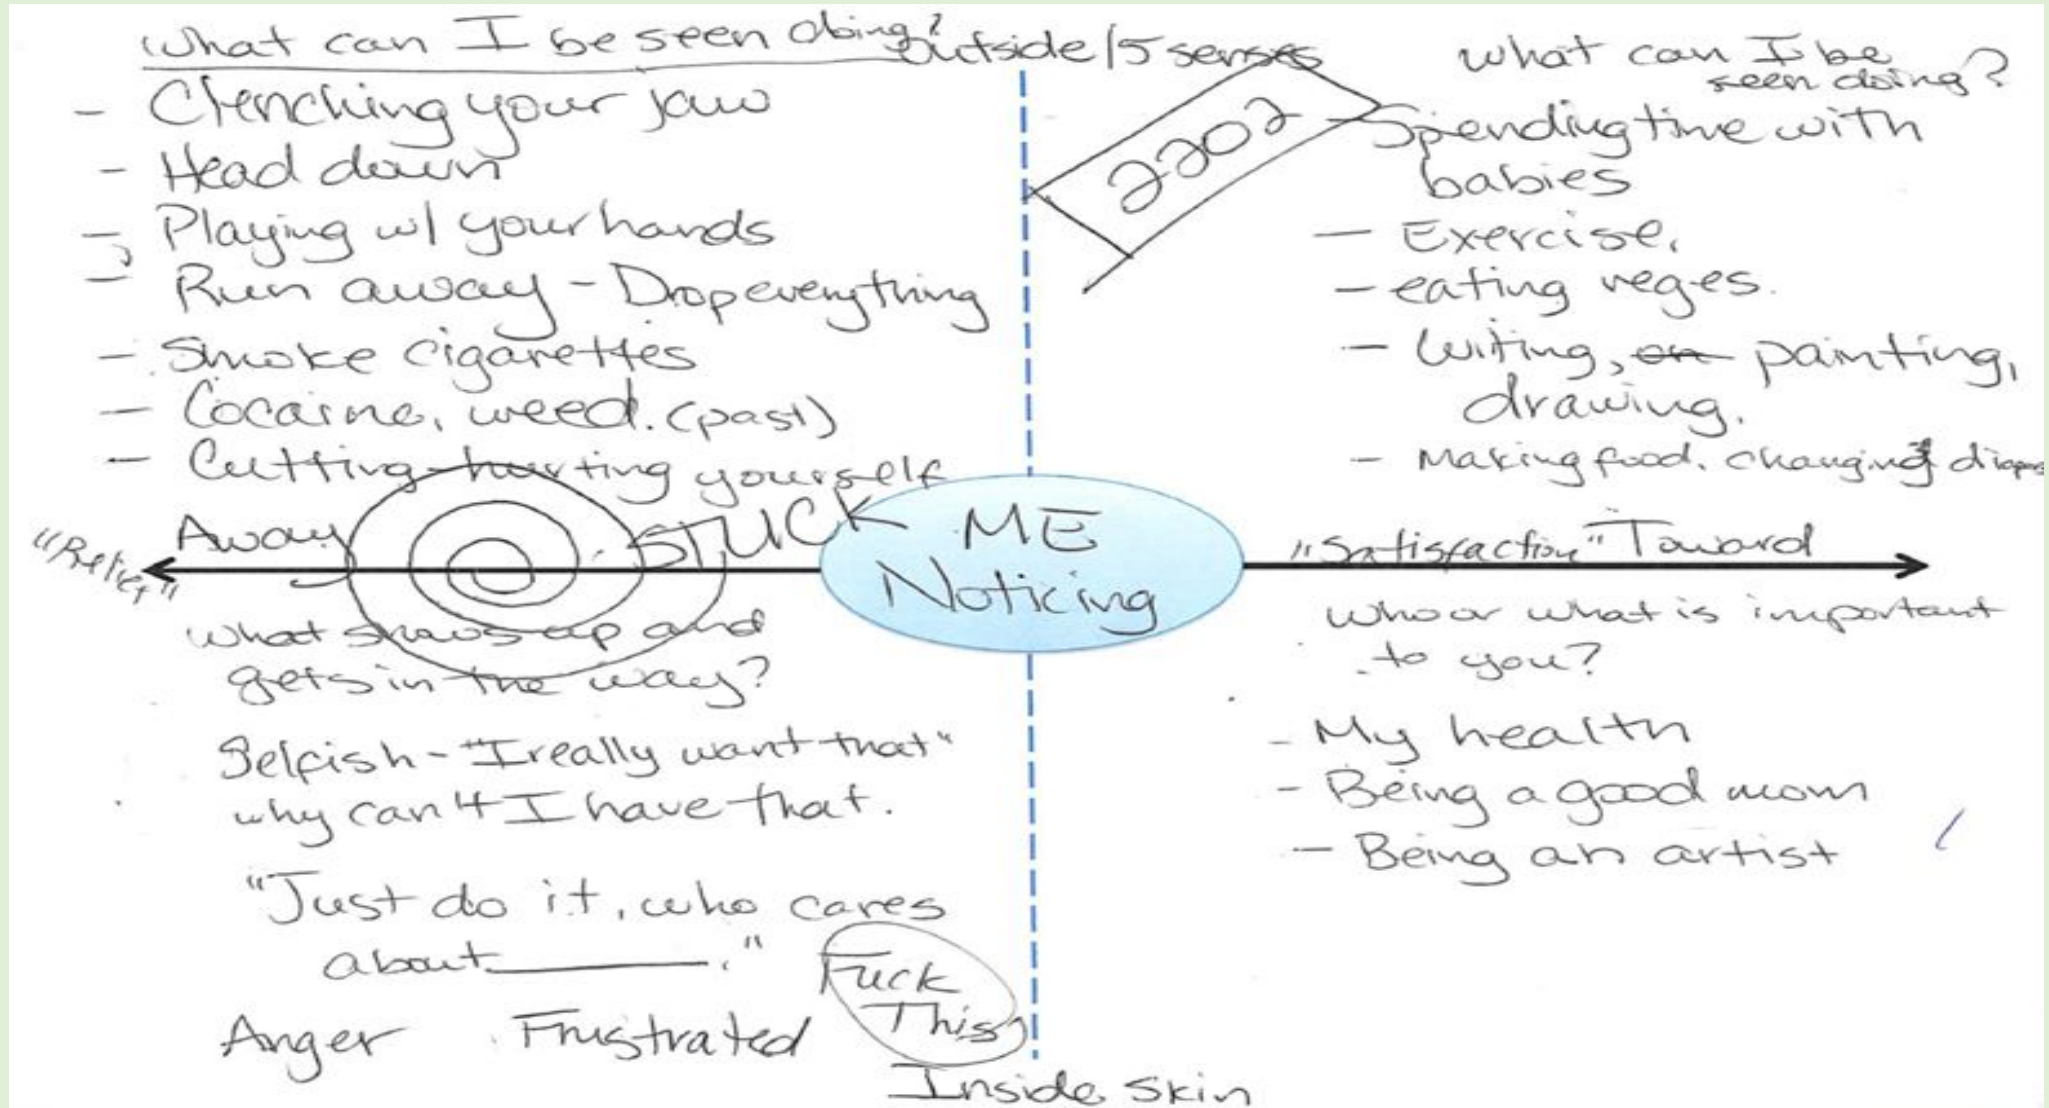 What can I be seen doing?
- Clenching your jaw
- Head down
- Playing w/ your hands
- Run away - Drop everything
- Smoke cigarettes
- Cocaine, weed. (past)
- Cutting - hurting yourself
Outside/5 senses
2202
What can I be
seen doing?
- Spending time with
babies
- Exercise.
- eating veges.
- Writing, on painting,
drawing.
- Making food. changing diapers
"Relief"
Away
STUCK
ME
Noticing
"Satisfaction" Toward
What shows up and
gets in the way?
Selfish - "I really want that"
why can't I have that.
"Just do it, who cares
about ______."
Anger Frustrated
Fuck
This
Inside Skin
Who or what is important
to you?
- My health
- Being a good mom
- Being an artist